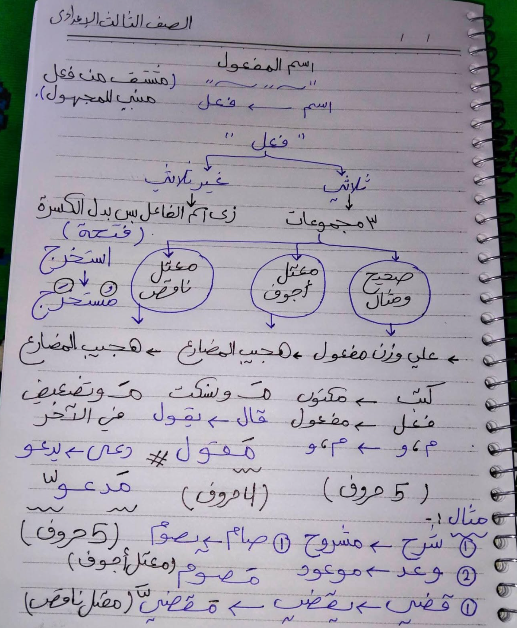 الصف الثالث الإعدادى
اسم المفعول
(مشتق من فعل
اسم ← فعل مبني للمجهول).
"فعل"
ثلاثي غير ثلاثي
٣ مجموعات زى اسم الفاعل بس بدل الكسرة
(فتحة)
صحيح ومثال معتل أجوف معتل ناقص استخرج
مستخرج
← علي وزن مفعول ← هجيب المضارع ← هجيب المضارع
كتب ← مكتوب مـَ ونسكت مـَ وتضعيف
فعل ← مفعول قال ← يقول في الآخر
م، و ← م، و مَقول # دعى ← يدعو
(5 حروف) (4 حروف) مَدعوّ
مثال :-
① شرح ← مشروح ① صام ← يصوم (5 حروف)
② وعد ← موعود مَصوم (معتل أجوف)
① قضي ← يقضي ← مَقضيّ (معتل ناقص)